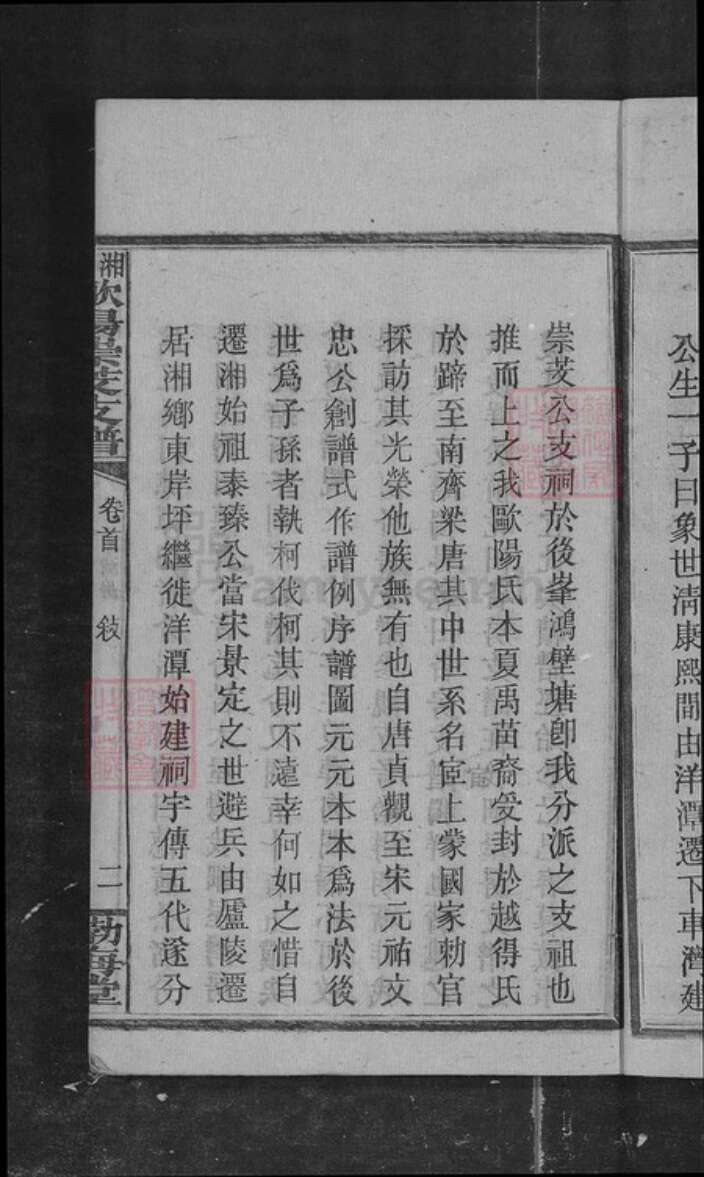 公生一子曰象世淸康熙間由洋潭遷下車灣建
崇芰公支祠於後峯鴻壁塘卽我分派之支祖也
推而上之我歐陽氏本夏禹苗裔受封於越得氏
於蹄至南齊梁唐其中世系名宦上蒙國家勅官
採訪其光榮他族無有也自唐貞觀至宋元祐文
忠公創譜式作譜例序譜圖元元本本爲法於後
世爲子孫者執柯伐柯其則不遠幸何如之惜自
遷湘始祖泰臻公當宋景定之世避兵由廬陵遷
居湘鄉東岸坪繼徙洋潭始建祠宇傳五代遂分
湘歐陽崇芰支譜
卷首
敍
二
勃海堂